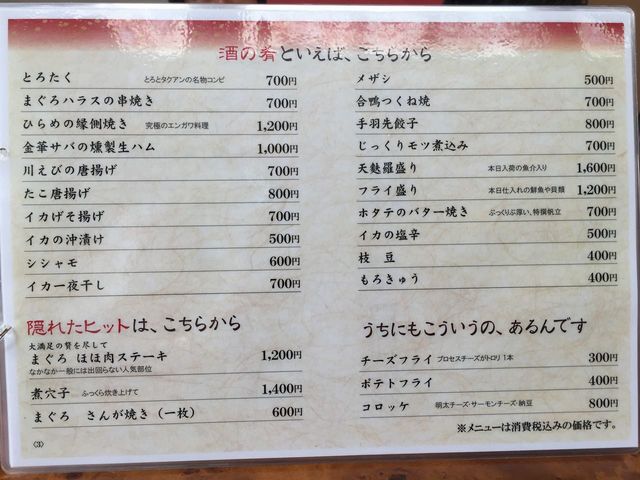 酒の肴といえば、こちらから
とろたく とろとタクアンの名物コンビ 700円
まぐろハラスの串焼き 700円
ひらめの縁側焼き 究極のエンガワ料理 1,200円
金華サバの燻製生ハム 1,000円
川えびの唐揚げ 700円
たこ唐揚げ 800円
イカげそ揚げ 700円
イカの沖漬け 500円
シシャモ 600円
イカ一夜干し 700円
メザシ 500円
合鴨つくね焼 700円
手羽先餃子 800円
じっくりモツ煮込み 700円
天麩羅盛り 本日入荷の魚介入り 1,600円
フライ盛り 本日仕入れの鮮魚や貝類 1,200円
ホタテのバター焼き ぷっくりぶ厚い、特撰帆立 700円
イカの塩辛 500円
枝 豆 400円
もろきゅう 400円
隠れたヒットは、こちらから
大満足の贅を尽して
まぐろ ほほ肉ステーキ 1,200円
なかなか一般には出回らない人気部位
煮穴子 ふっくら炊き上げて 1,400円
まぐろ さんが焼き（一枚） 600円
うちにもこういうの、あるんです
チーズフライ プロセスチーズがトロリ 1本 300円
ポテトフライ 400円
コロッケ 明太チーズ・サーモンチーズ・納豆 800円
※メニューは消費税込みの価格です。
〈3〉